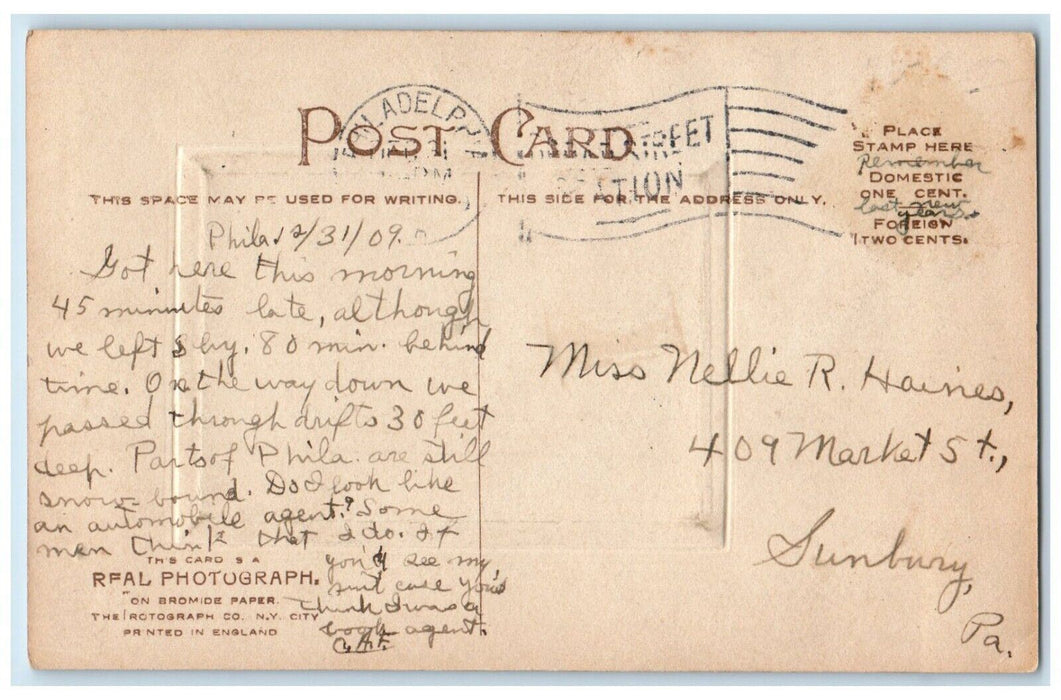 POST CARD
PHILADELPH
STREET
STATION
PLACE
STAMP HERE
Remember
DOMESTIC
ONE CENT.
last new
years.
FOREIGN
TWO CENTS.
THIS SPACE MAY BE USED FOR WRITING.
THIS SIDE FOR THE ADDRESS ONLY.
Phila. 12/31/09.
Got here this morning
45 minutes late, although
we left Sby. 80 min. behind
time. On the way down we
passed through drifts 30 feet
deep. Parts of Phila. are still
snow-bound. Do I look like
an automobile agent? Some
men think that I do. If
you'd see my
suit case you'd
think I was a
book agent.
Miss Nellie R. Haines,
409 Market St.,
Sunbury,
Pa.
THIS CARD IS A
REAL PHOTOGRAPH.
ON BROMIDE PAPER.
THE ROTOGRAPH CO. N.Y. CITY
PRINTED IN ENGLAND